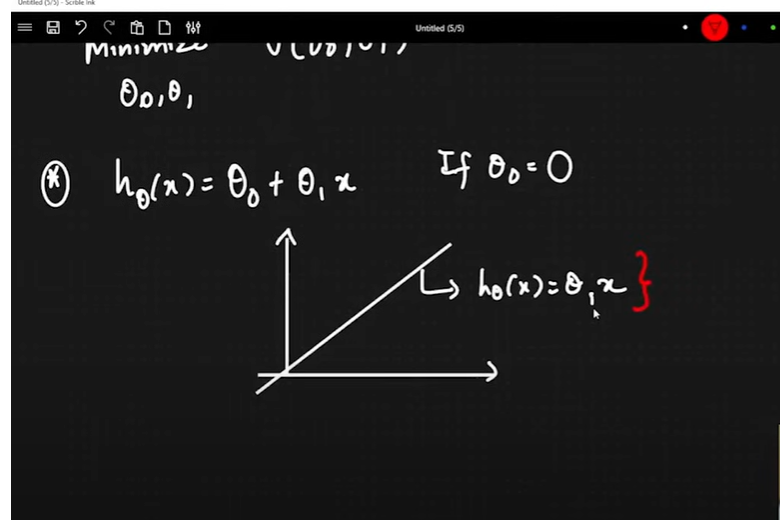 Untitled (5/5) - Scrble Ink
Untitled (5/5)
Minimize J(θ0, θ1)
θ0, θ1
* hθ(x) = θ0 + θ1 x If θ0 = 0
hθ(x) = θ1 x }